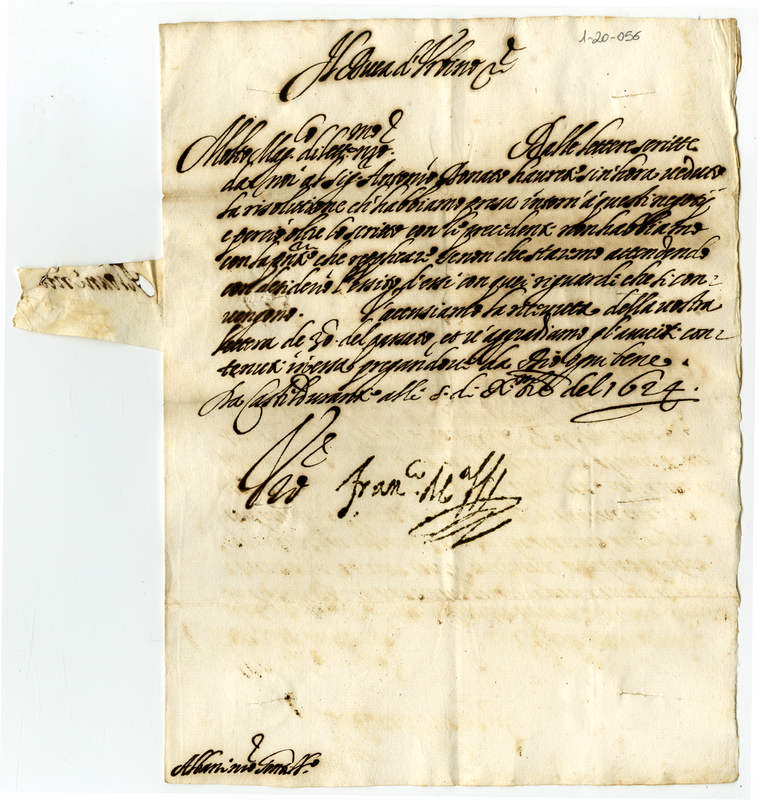 1-20-056
Il Duca di Urbino &c
Molto Mag.co dilett.mo n'ro. Dalle lettere scritte
da noi al Sig.r Antonio Donato haurete sin'hora veduto
la risolutione ch'habbiamo presa intorno a questi negotij
e perciò oltre lo scritto con le precedenti non habbiamo
con la p'nte che replicare se non che staremo attendendo
con desiderio l'essito d'essi con quei riguardi che si con=
vengono. V'accusiamo la riceuuta della vostra
lettera de 30. del passato, et v'aggradiamo gl'auuisi con=
tenuti in essa pregandoui da Dio ogni bene.
Da Castel Durante alli 8. di X.bre del 1624.
Fran.co M.a
Albani